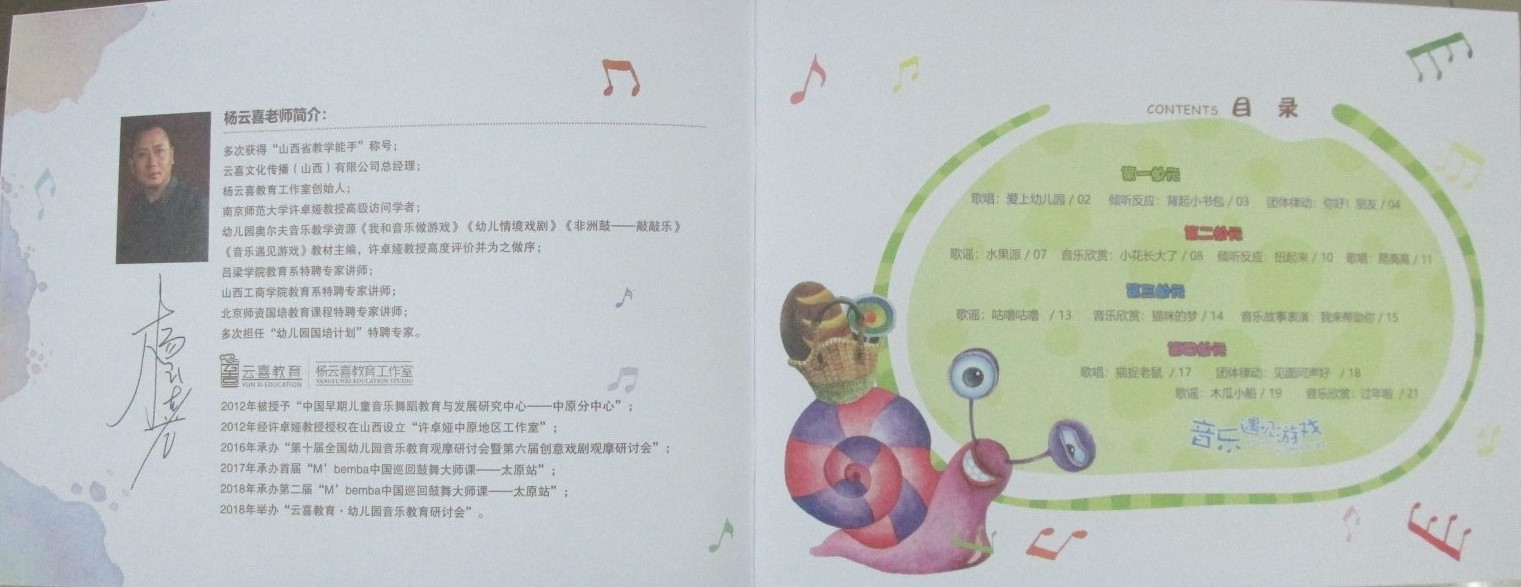 杨云喜老师简介：
多次获得“山西省教学能手”称号；
云喜文化传播（山西）有限公司总经理；
杨云喜教育工作室创始人；
南京师范大学许卓娅教授高级访问学者；
幼儿园奥尔夫音乐教学资源《我和音乐做游戏》《幼儿情境戏剧》《非洲鼓——敲敲乐》
《音乐遇见游戏》教材主编，许卓娅教授高度评价并为之做序；
吕梁学院教育系特聘专家讲师；
山西工商学院教育系特聘专家讲师；
北京师资国培教育课程特聘专家讲师；
多次担任“幼儿园国培计划”特聘专家。
云喜教育 杨云喜教育工作室
YUN XI EDUCATION YANGYUNXI EDUCATION STUDIO
2012年被授予“中国早期儿童音乐舞蹈教育与发展研究中心——中原分中心”；
2012年经许卓娅教授授权在山西设立“许卓娅中原地区工作室”；
2016年承办“第十届全国幼儿园音乐教育观摩研讨会暨第六届创意戏剧观摩研讨会”；
2017年承办首届“M’bemba中国巡回鼓舞大师课——太原站”；
2018年承办第二届“M’bemba中国巡回鼓舞大师课——太原站”；
2018年举办“云喜教育·幼儿园音乐教育研讨会”。
CONTENTS 目 录
第一单元
歌唱：爱上幼儿园 / 02 倾听反应：背起小书包 / 03 团体律动：你好！朋友 / 04
第二单元
歌谣：水果派 / 07 音乐欣赏：小花长大了 / 08 倾听反应：扭起来 / 10 歌唱：爬高高 / 11
第三单元
歌谣：咕噜咕噜 / 13 音乐欣赏：猫咪的梦 / 14 音乐故事表演：我来帮助你 / 15
第四单元
歌唱：猫捉老鼠 / 17 团体律动：见面问声好 / 18
歌谣：木瓜小船 / 19 音乐欣赏：过年啦 / 21
音乐遇见游戏